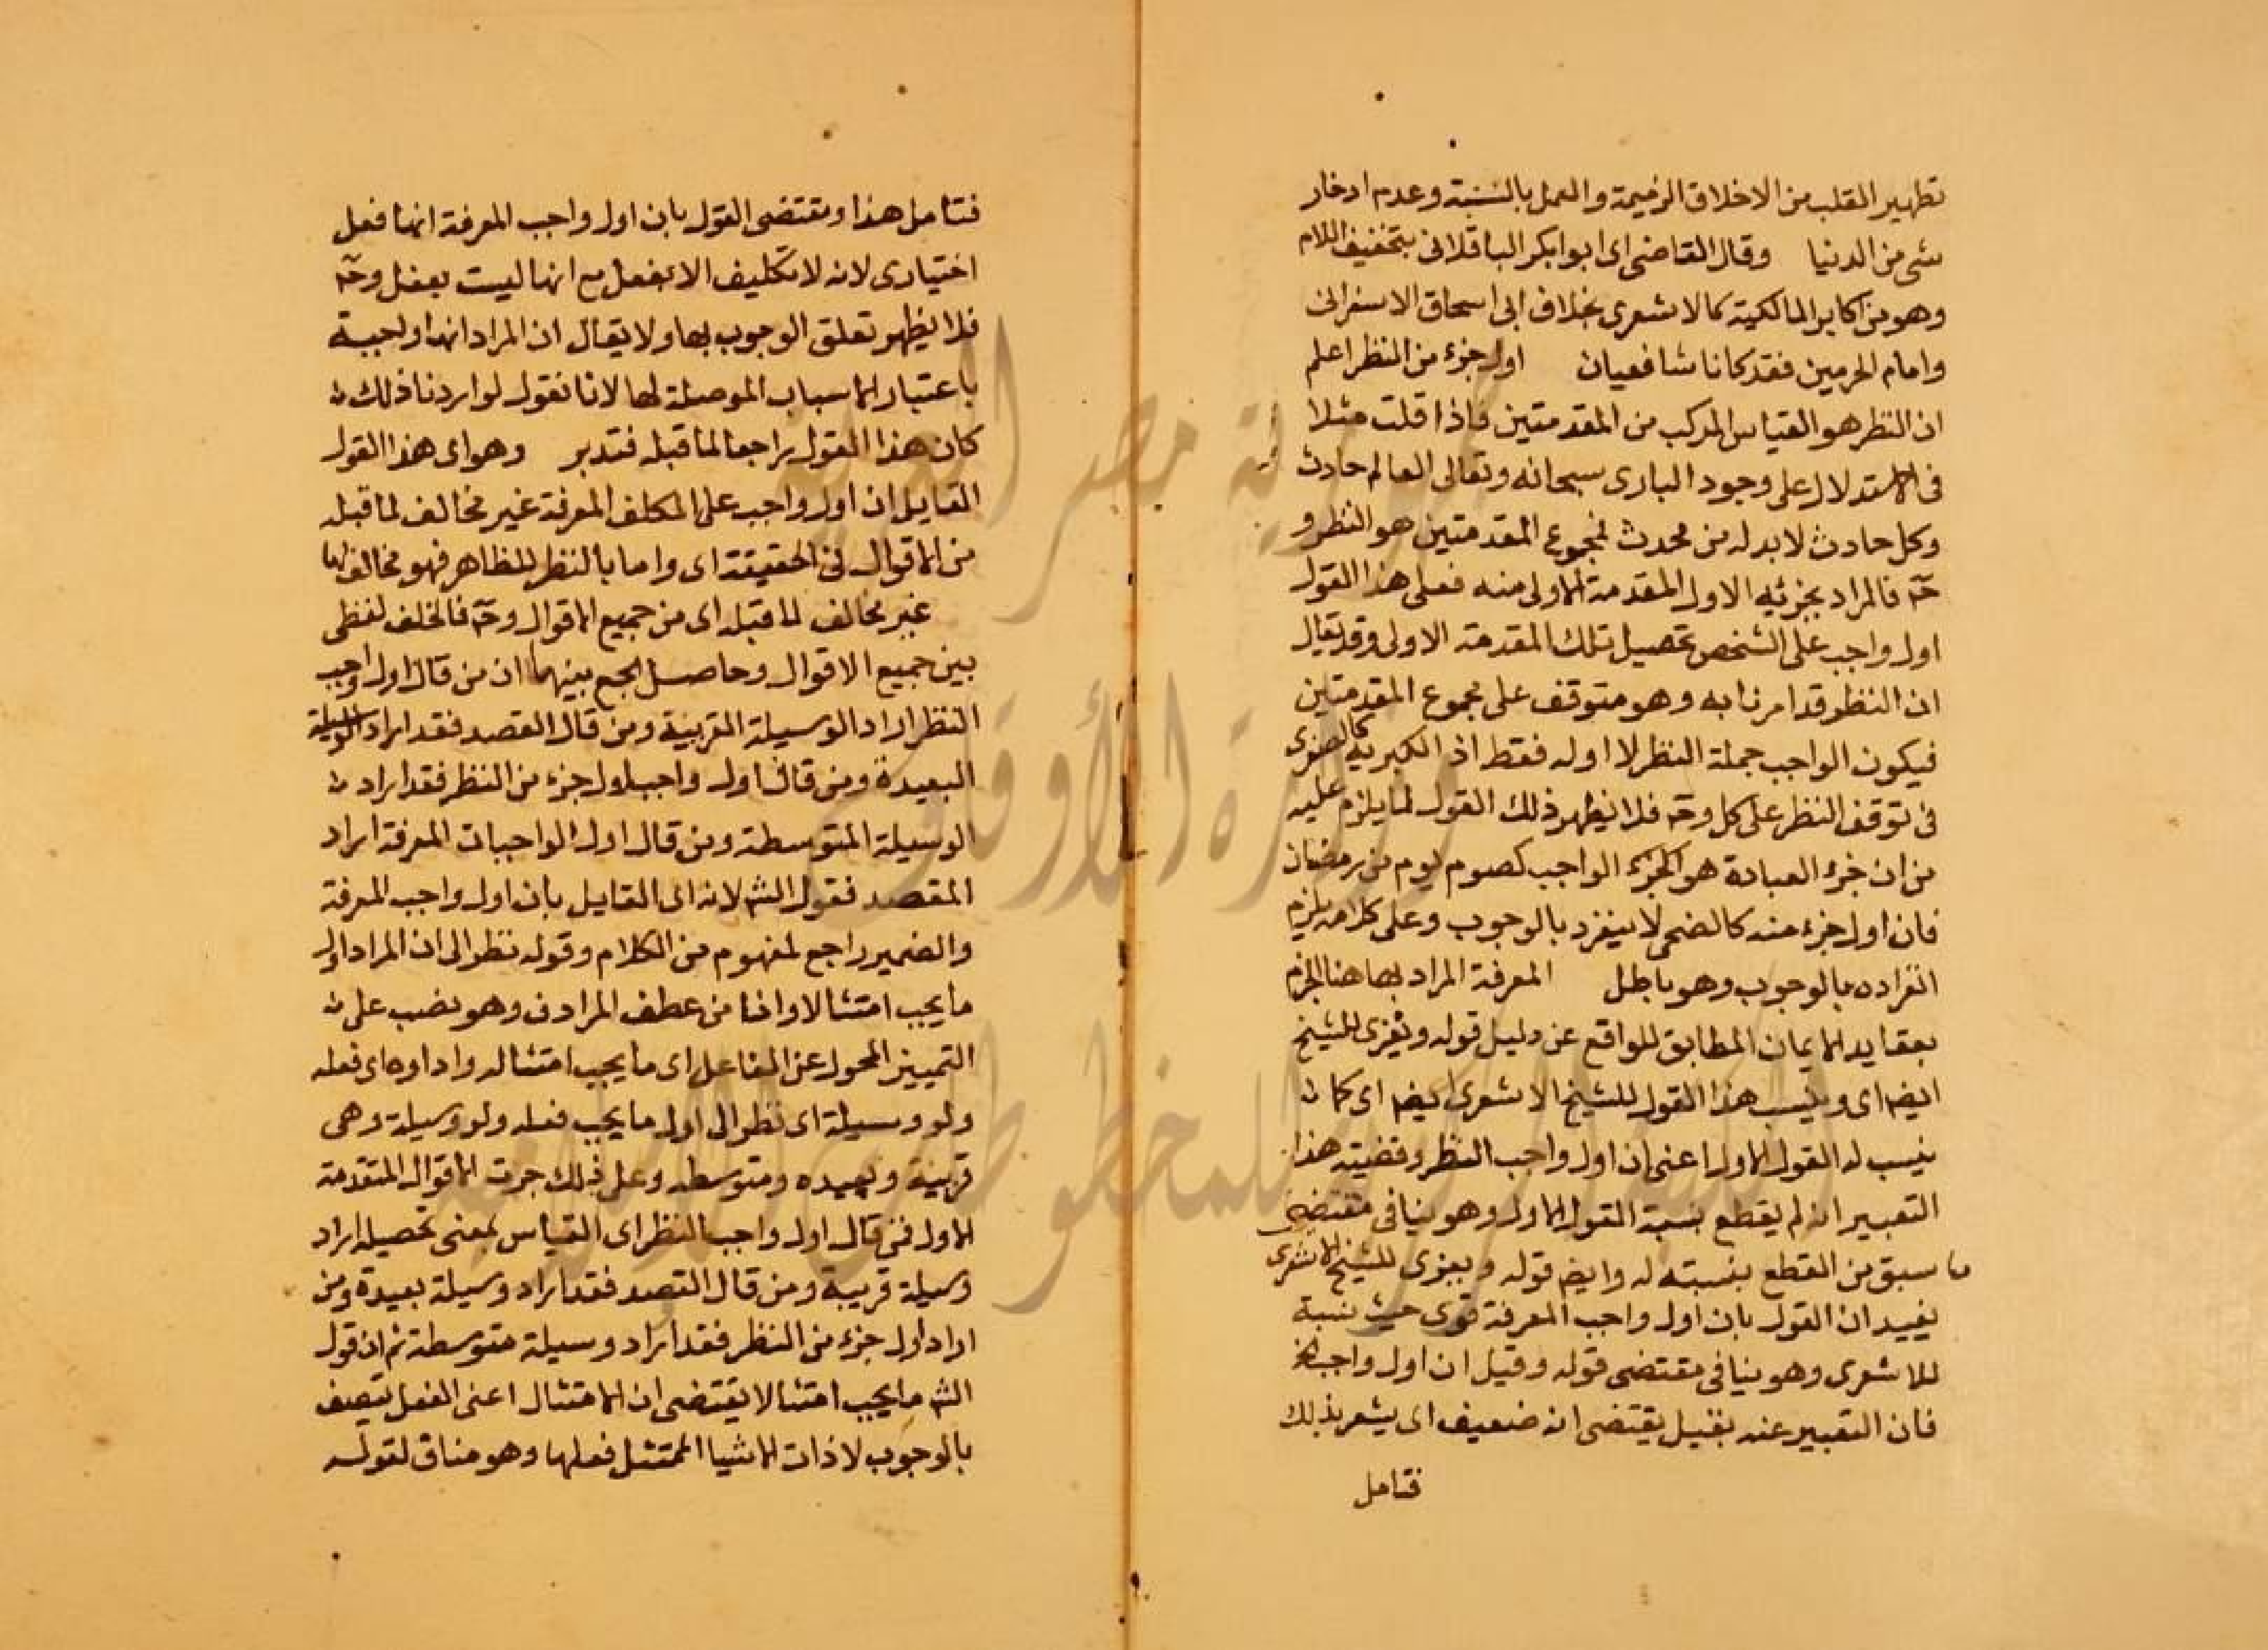 تطهير القلب من الاخلاق الذميمة والعمل بالسنة وعدم ادخار
شى من الدنيا وقال القاضى اى ابو ابكر الباقلانى بتخفيف اللام
وهو من اكابر المالكية كالاشعرى بخلاف ابى اسحاق الاسفرانى
وامام الحرمين فقد كانا شافعيان اول جزء من النظر اعلم
ان النظر هو القياس المركب من المقدمتين فاذا قلت مثلا
فى الاستدلال على وجود البارى سبحانه وتعالى العالم حادث
وكل حادث لابد له من محدث فمجموع المقدمتين هو النظر و
حٓ فالمراد بجزئه الاول المقدمة الاولى منه فعلى هذا القول
اول واجب على الشخص تحصيل تلك المقدمة الاولى وقد يقال
ان النظر قد امرنا به وهو متوقف على مجموع المقدمتين
فيكون الواجب جملة النظر لا اوله فقط اذ الكبرى كالصغرى
فى توقف النظر على كل وحٓ فلا يظهر ذلك القول لما يلزم عليه
من ان جزء العبادة هو الجزء الواجب كصوم يوم من رمضان
فان اول جزء منه كالضحى لا ينفرد بالوجوب وعلى كلامه يلزم
انفراده بالوجوب وهو باطل المعرفة المراد بها هنا الجزم
بعقايد الايمان المطابق للواقع عن دليل قوله ويعزى للشيخ
ايضا اى وينسب هذا القول للشيخ الاشعرى ايضا اى كما
ينسب له القول الاول اعنى ان اول واجب النظر وقضيته هذا
التعبير انه لم يقطع بنسبة القول الاول وهو ينافى مقتضى
ما سبق من القطع بنسبته له وايضا قوله ويعزى للشيخ الاشعرى
يفيد ان القول بان اول واجب المعرفة قوى حيث نسبة
للاشعرى وهو ينافى مقتضى قوله وقيل ان اول واجب الخ
فان التعبير عنه بقيل يقتضى انه ضعيف اى يشعر بذلك
فتامل
فتامل هذا ومقتضى القول بان اول واجب المعرفة انها فعل
اختيارى لانه لا تكليف الا بفعل مع انها ليست بفعل وحٓ
فلا يظهر تعلق الوجوب بها ولا يقال ان المراد انها واجبة
باعتبار الاسباب الموصلة لها لانا نقول لو اردنا ذلك
كان هذا القول راجعا لما قبله فتدبر وهو اى هذا القول
القايل ان اول واجب على المكلف المعرفة غير مخالف لما قبله
من الاقوال فى الحقيقة اى واما بالنظر للظاهر فهو مخالف لها
غير مخالف لما قبله اى من جميع الاقوال وحٓ فالخلف لفظى
بين جميع الاقوال وحاصل الجمع بينهما ان من قال اول واجب
النظر اراد الوسيلة القريبة ومن قال القصد فقد اراد الوسيلة
البعيدة ومن قال اول واجب اول جزء من النظر فقد اراد
الوسيلة المتوسطة ومن قال اول الواجبات المعرفة اراد
المقصد فقول الش لانه اى القايل بان اول واجب المعرفة
والضمير راجع لمفهوم من الكلام وقوله نظر الى ان المراد اول
ما يجب امتثالا وادا من عطف المرادف وهو نصب على
التمييز المحول عن الفاعل اى ما يجب امتثاله واداوه اى فعله
ولو وسيلة اى نظر الى اول ما يجب فعله ولو وسيلة وهى
قريبة وبعيده ومتوسطه وعلى ذلك جرت الاقوال المتقدمة
الاول فمن قال اول واجب النظر اى القياس بمعنى تحصيله اراد
وسيلة قريبة ومن قال القصد فقد اراد وسيلة بعيدة ومن
اراد اول جزء من النظر فقد اراد وسيلة متوسطة ثم ان قول
الش ما يجب امتثالا يقتضى ان الامتثال اعنى الفعل يتصف
بالوجوب لا ذات الاشيا الممتثل فعلها وهو مناف لقوله